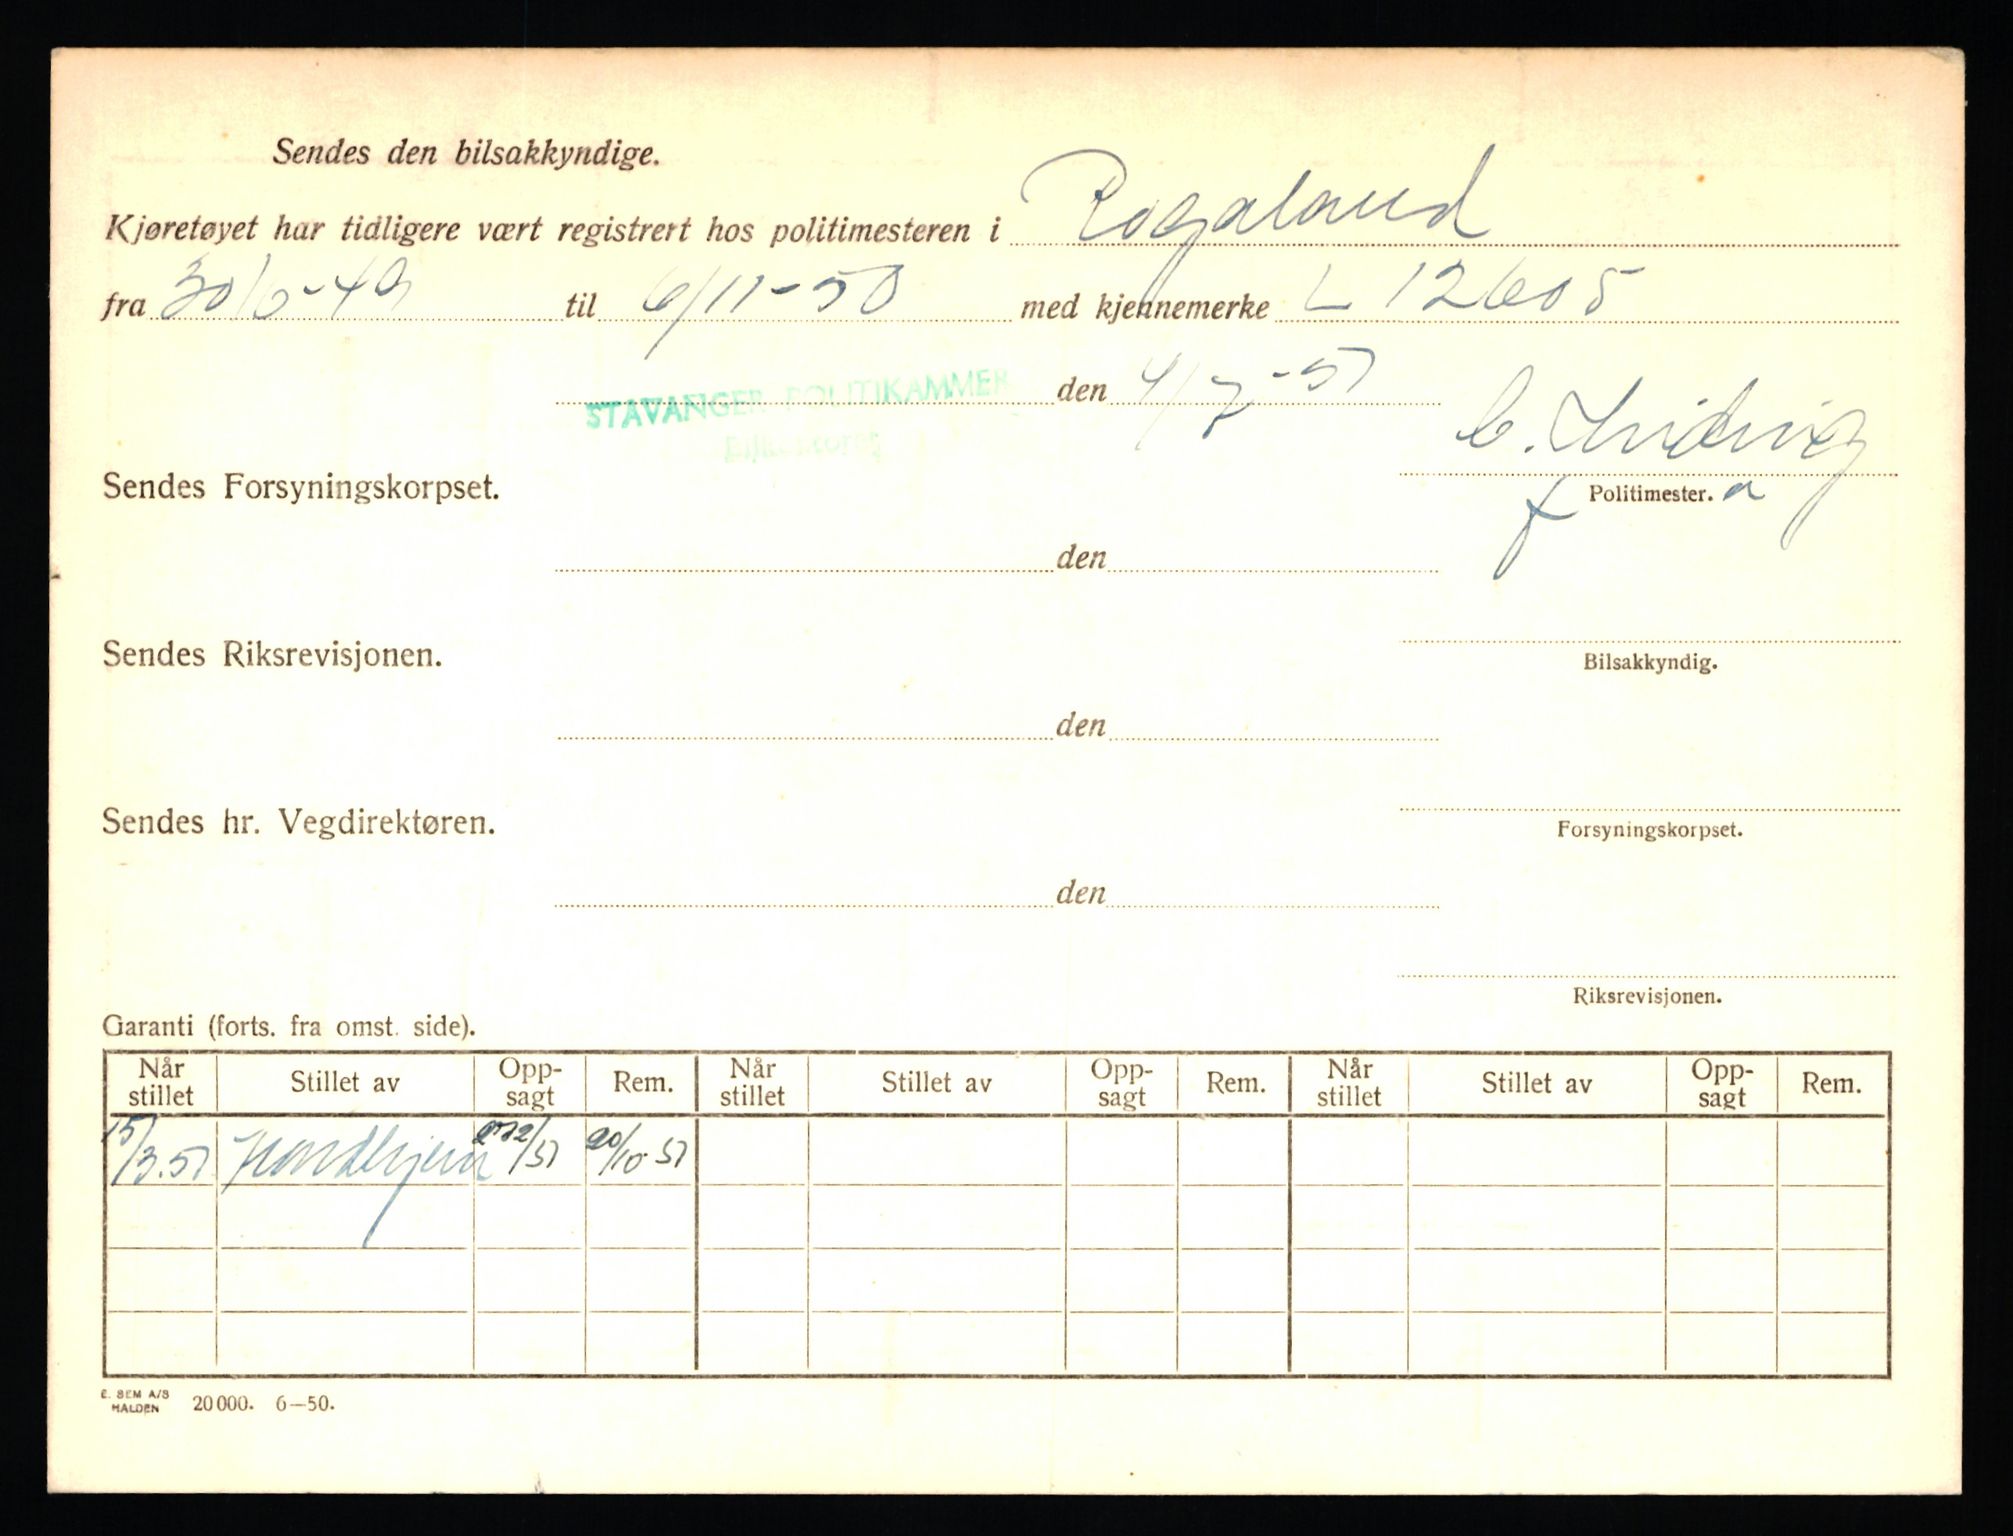 Sendes den bilsakkyndige.
Kjøretøyet har tidligere vært registrert hos politimesteren i Rogaland
fra 30/6-49 til 6/11-50 med kjennemerke L 12605
STAVANGER POLITIKAMMER den 4/7-51
Bilkontoret
Sendes Forsyningskorpset.
f Politimester. a
den
Sendes Riksrevisjonen.
Bilsakkyndig.
den
Sendes hr. Vegdirektøren.
Forsyningskorpset.
den
Riksrevisjonen.
Garanti (forts. fra omst. side).
Når stillet Stillet av Opp-sagt Rem. Når stillet Stillet av Opp-sagt Rem. Når stillet Stillet av Opp-sagt Rem.
15/3.51 20/10-51
E. SEM A/S
HALDEN 20000. 6—50.